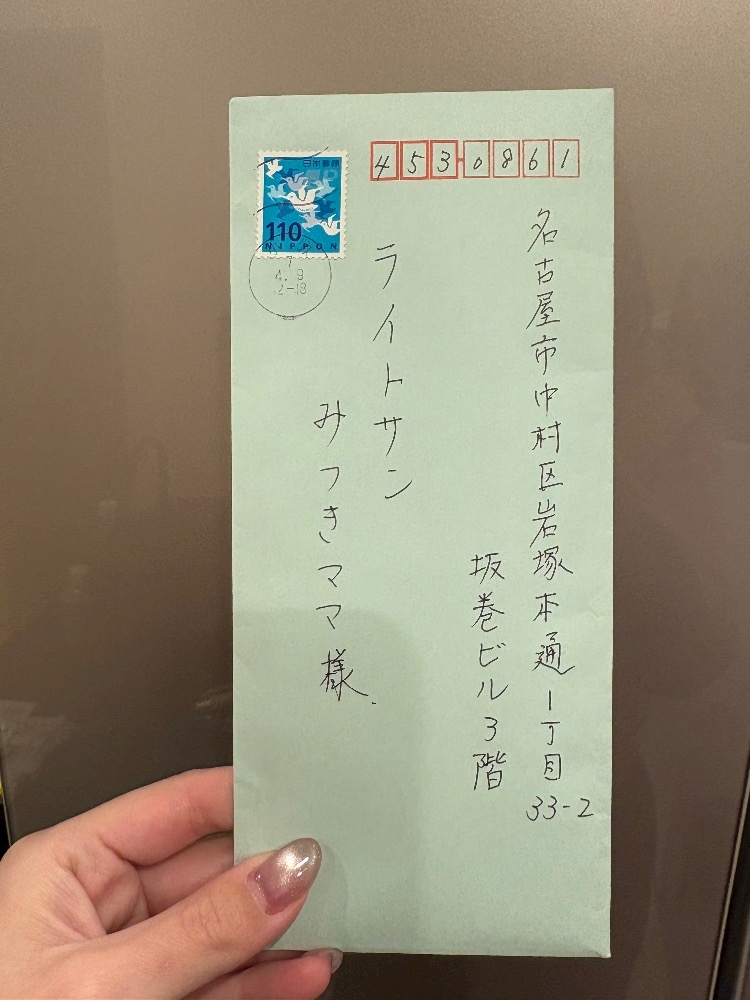 453-0861
名古屋市中村区岩塚本通1丁目
33-2
坂巻ビル3階
ライトサン
みつきママ様
日本郵便
110
NIPPON
7
4. 9